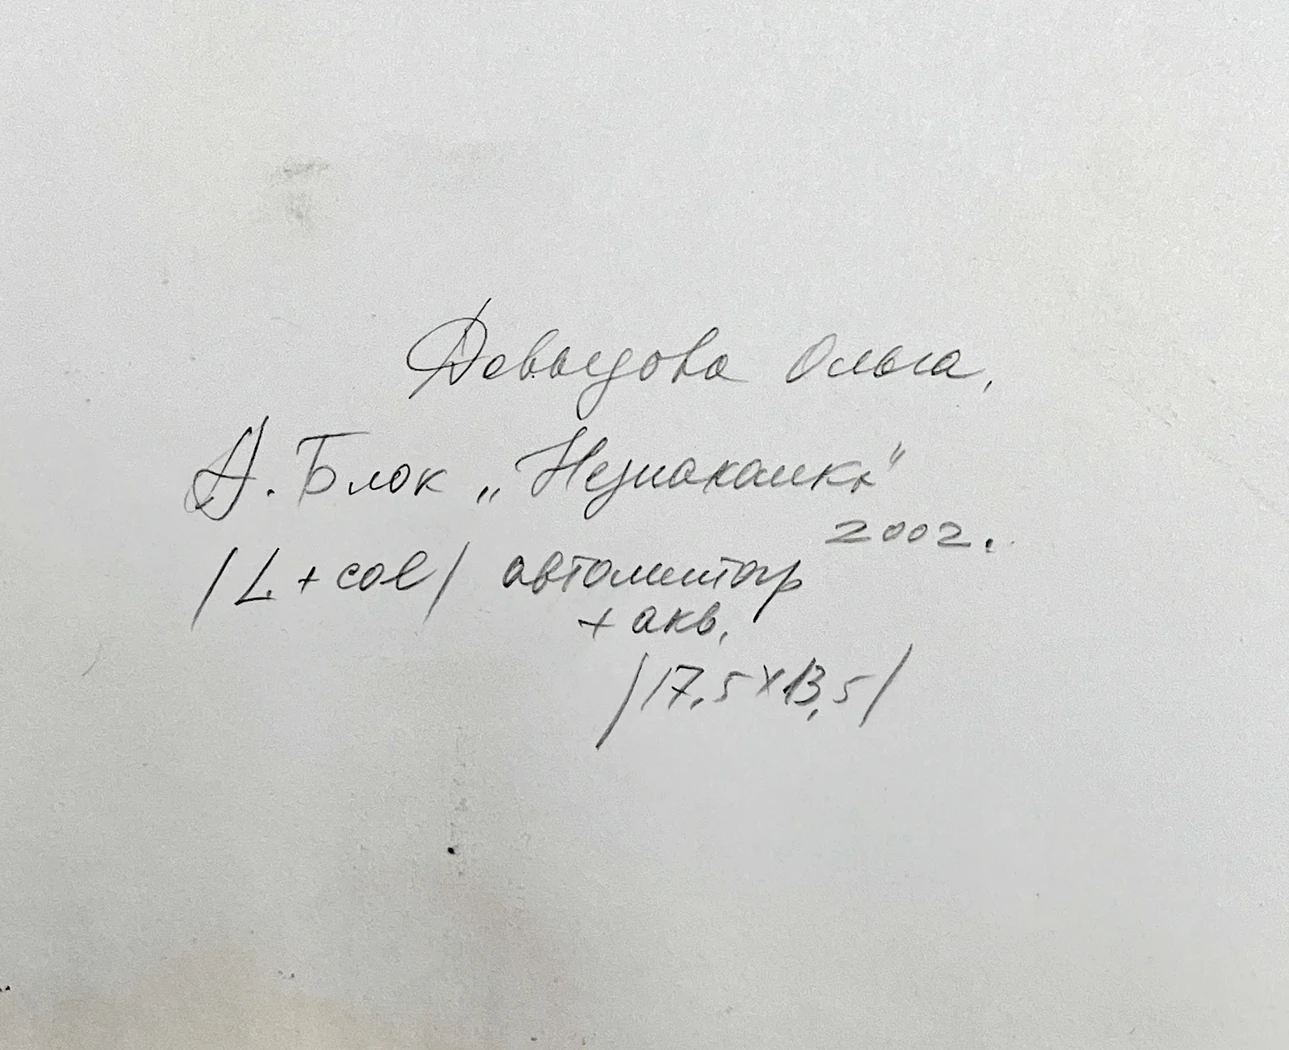 Давыдова Ольга,
А. Блок „Незнакомка"
2002.
/L + col/ автолитогр
+ акв.
/17,5 х 13,5/